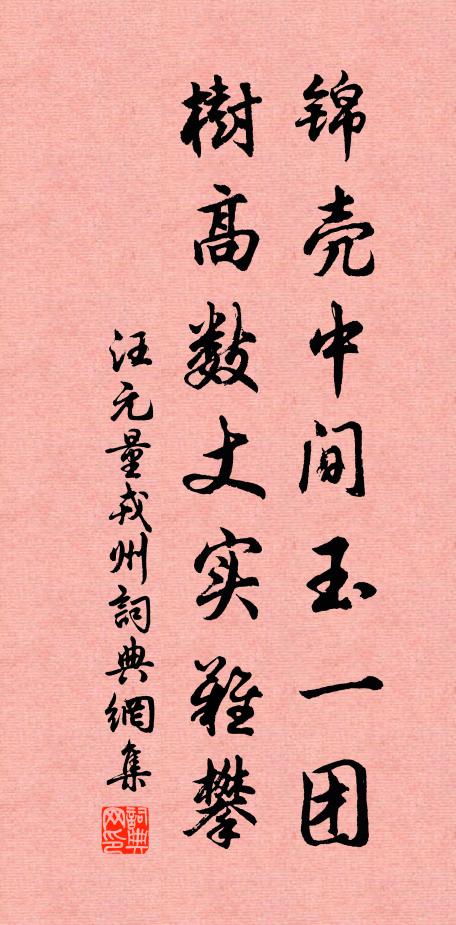 锦壳中间玉一团
樹高数丈实難攀
汪元量戎州詞典網集
詞典網印